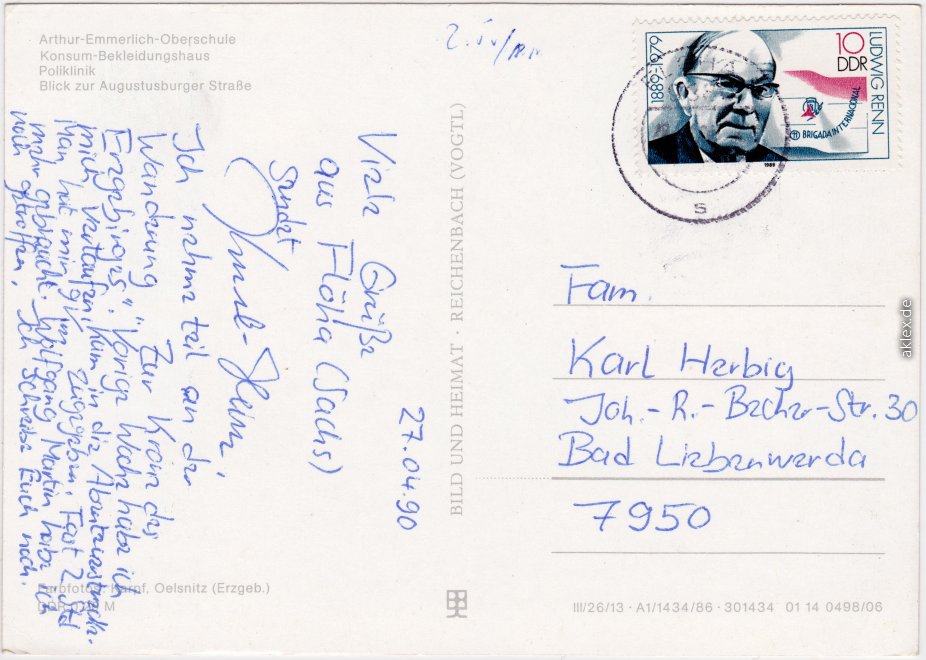 Arthur-Emmerlich-Oberschule
Konsum-Bekleidungshaus
Poliklinik
Blick zur Augustusburger Straße
27.04.90
Viele Grüße
aus Flöha (Sachs)
sendet
Heim,
Ich nehme teil an der
Wanderung "Zur Krone des
Erzgebirges". Vorige Woche habe ich
mich verlaufen, kam in die
Man hat mir im zugegeben. Fast 2 Std
mehr gebraucht. Wolfgang Martin habe ich
noch getroffen. Ich schreibe Euch noch.
Farbfotos: Karpf, Oelsnitz (Erzgeb.)
M
BILD UND HEIMAT · REICHENBACH (VOGTL)
1889-1979
10
DDR
LUDWIG RENN
BRIGADA INTERNACIONAL
1989
s
Fam.
Karl Herbig
Joh.-R.-Becher-Str. 30
Bad Liebenwerda
7950
III/26/13 · A1/1434/86 · 301434 01 14 0498/06
aklex.de